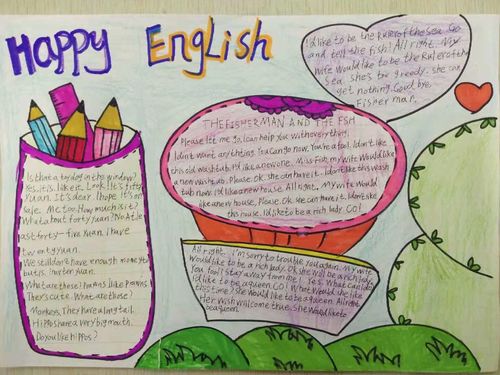 HAPPY ENGLISH
I'd like to be the Ruler of the sea. Go
and tell the fish! All right. My
wife would like to be the Ruler of the
sea. She's too greedy. She can
get nothing. Good bye.
Fisher man.
THE FISHERMAN AND THE FSH
Please let me go, I can help you with everything.
I didn't want anything. You can go now. You're a fool. I don't like
this old wash tub. I'd like a new one. Miss Fish, my wife would like
a new wash tub. Please. Ok. She can have it. I don't like this wash
tub now. I'd like a new house. All right. My wife would
like a new house. Please. Ok. She can have it. I don't like
this house. I'd like to be a rich lady. GO!
All right. I'm sorry to trouble you again. My wife
would like to be a rich lady. Ok. She will be a rich lady.
You fool! Stay away from me! Yes. What can I do
I'd like to be a queen. GO! What would she like
this time? She would like to be a queen. All right
Her wish will come true. She would like to
be a queen.
Is that a toy dog in the window?
Yes, it is. I like it. Look! It's fifty
yuan. It's dear. I hope it's on
Me too. How much is it?
What about forty yuan? No. At le
ast forty-five yuan. I have
twenty yuan.
We still don't have enough money t
What are these?
They're cute. What are those?
Monkeys. They have a long tail.
Hippos have a very big mouth.
Do you like hippos?